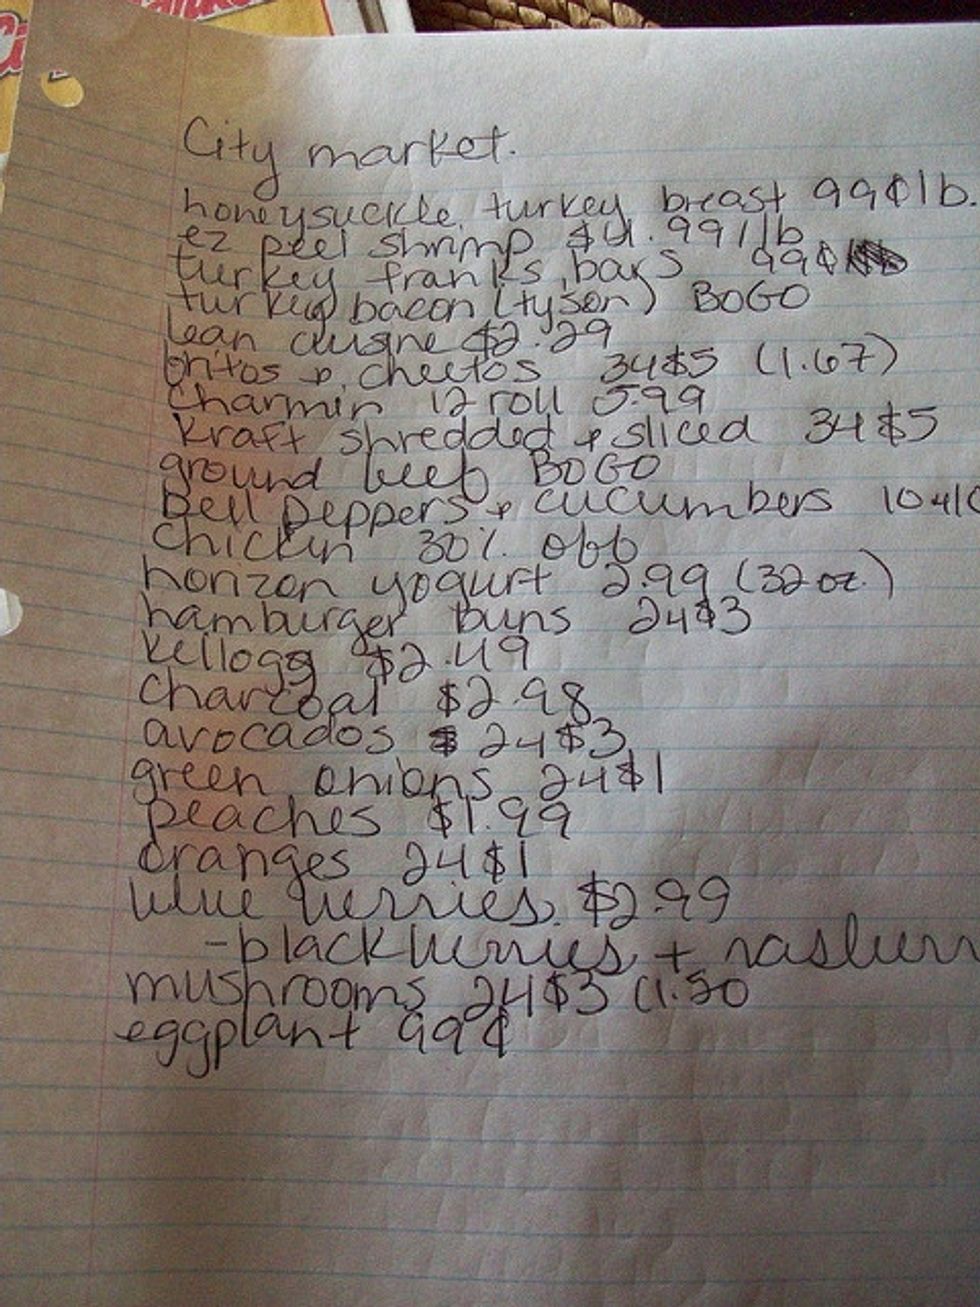 City market.
honeysuckle turkey breast 99¢ lb.
ez peel shrimp $4.99/lb
turkey franks bars 99¢
turkey bacon (tyson) BOGO
lean cuisine $2.29
britos & cheetos 34$5 (1.67)
Charmin 12 roll 5.99
Kraft shredded & sliced 34$5
ground beef BOGO
Bell peppers & cucumbers 10410
Chickin 30% off
horizon yogurt 2.99 (32 oz.)
hamburger buns 24$3
Kellogg $2.49
charcoal $2.98
avocados 24$3
green onions 24$1
peaches $1.99
oranges 24$1
blue berries $2.99
-blackberries + rasberr
mushrooms 24$3 (1.50
eggplant 99¢